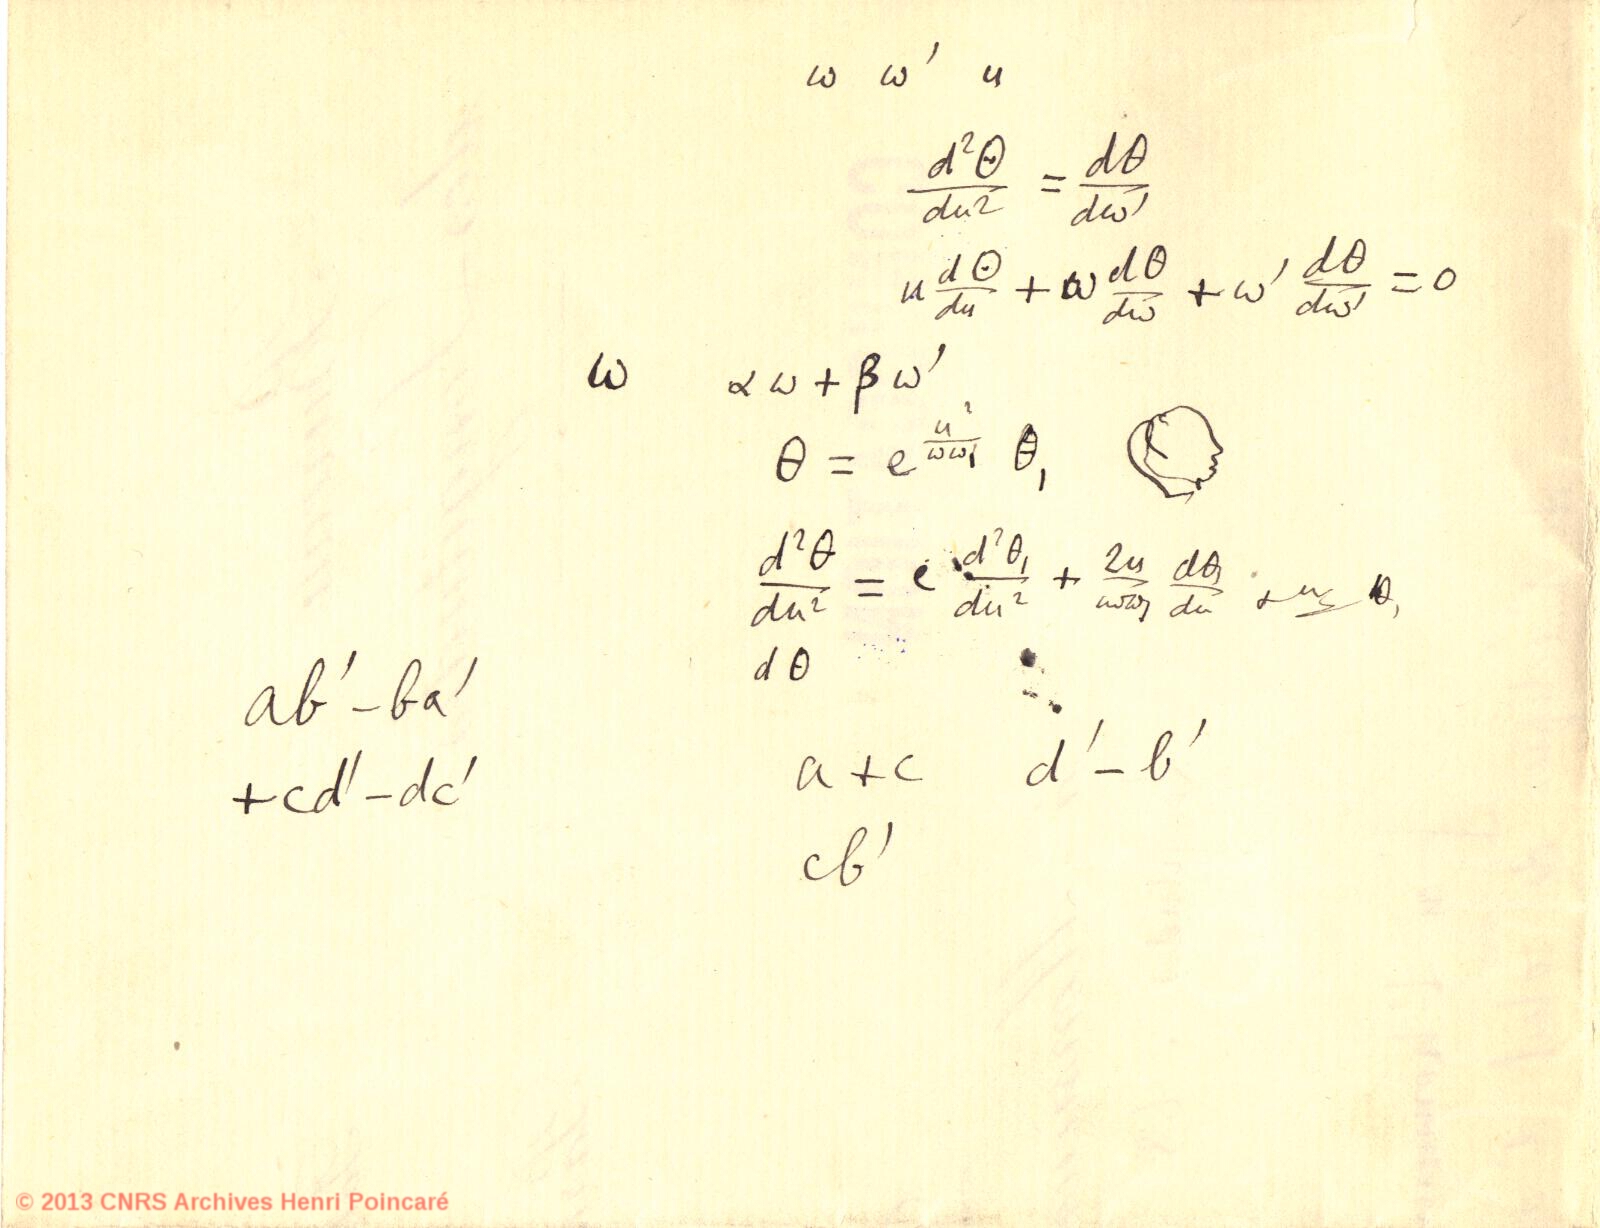 ω ω' u
d²Θ/du² = dθ/dω'
u dΘ/du + ω dθ/dω + ω' dθ/dω' = 0
ω αω + βω'
θ = e^(u²/ωω₁) θ₁
d²θ/du² = e d²θ₁/du² + 2u/ωω₁ dθ₁/du + θ₁
dθ
ab' - ba'
+ cd' - dc'
a + c d' - b'
cb'
© 2013 CNRS Archives Henri Poincaré